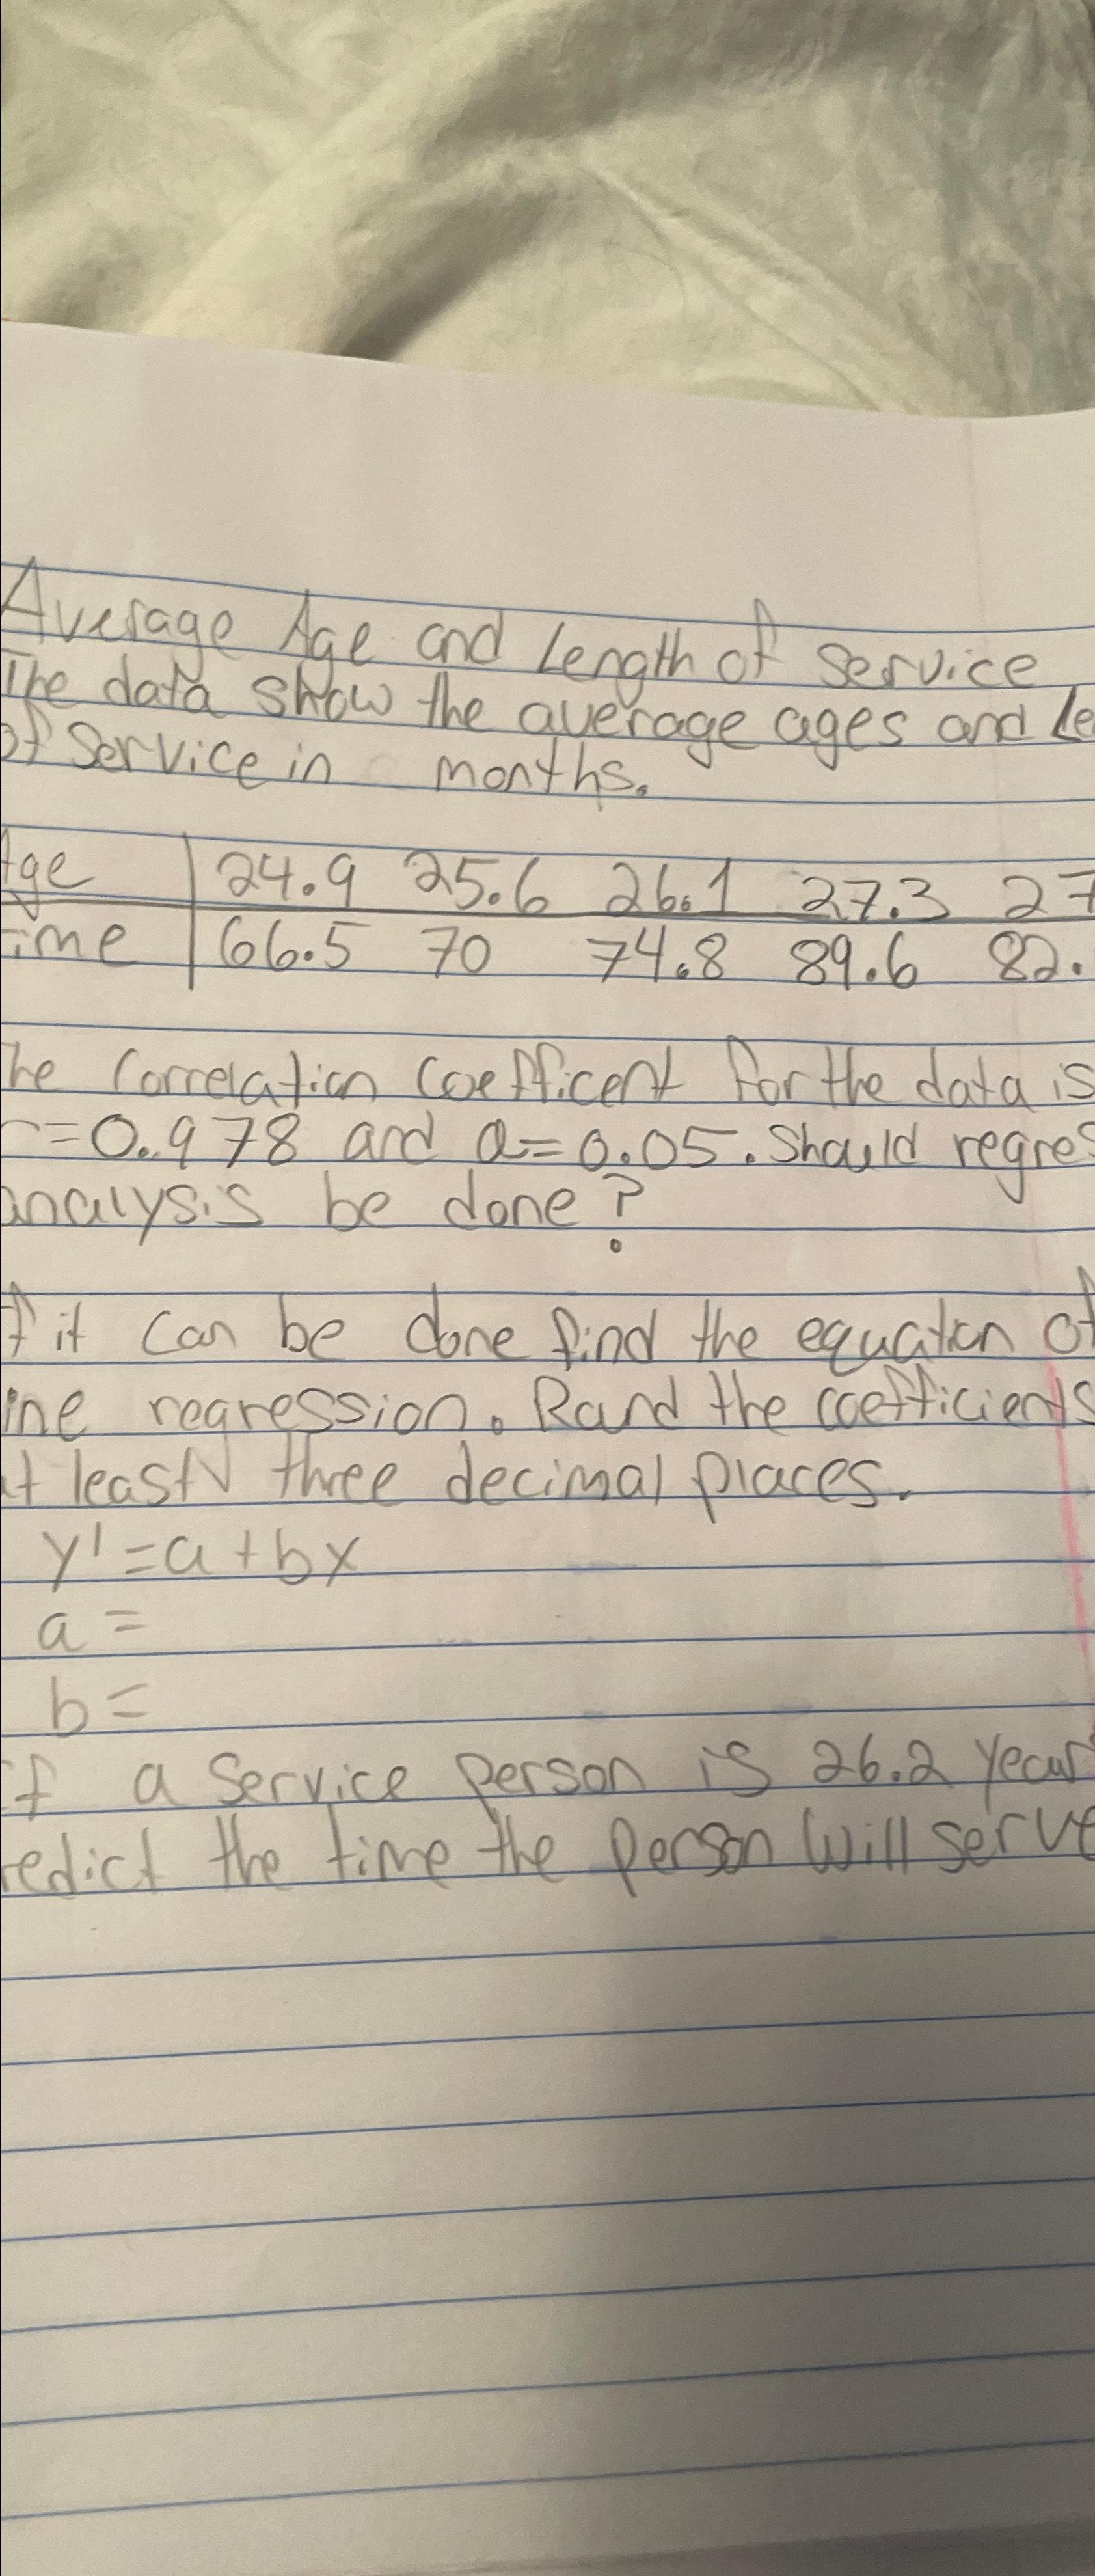 Average Age and Length of Service
The data show the average ages and Le
of Service in months.
Age 24.9 25.6 26.1 27.3 27
ime 66.5 70 74.8 89.6 82.
he Correlation Coefficent for the data is
r=0.978 and α=0.05. Should regres
analysis be done?
f it can be done find the equation of
ine regression. Rand the coefficients
t least three decimal places.
y'=a+bx
a=
b=
If a Service person is 26.2 year
redict the time the person will serve